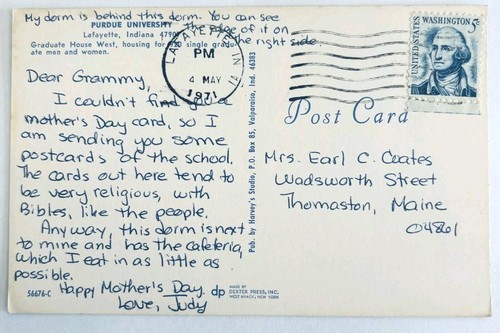 My dorm is behind this dorm. You can see
the edge of it on
the right side.
PURDUE UNIVERSITY
Lafayette, Indiana 47907
Graduate House West, housing for 820 single gradu-
ate men and women.
Dear Grammy,
I couldn't find a
mother's Day card, so I
am sending you some
postcards of the school.
The cards out here tend to
be very religious, with
Bibles, like the people.
Anyway, this dorm is next
to mine and has the cafeteria,
which I eat in as little as
possible.
Happy Mother's Day.
Love, Judy
56676-C
Pub. by Harvey's Studio, P.O. Box 85, Valparaiso, Ind. 46383
dp
MADE BY
DEXTER PRESS, INC.
WEST NYACK, NEW YORK
LAFAYETTE, IN
PM
4 MAY
1971
UNITED STATES
WASHINGTON
5c
Post Card
Mrs. Earl C. Coates
Wadsworth Street
Thomaston, Maine
04861